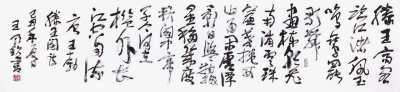 滕王高阁
临江渚佩玉
鸣鸾罢
歌舞
画栋朝飞
南浦云珠
帘暮卷西
山雨闲云潭
影日悠悠物
换星移几度
秋阁中帝
子今何在
槛外长
江空自流
唐王勃
滕王阁诗